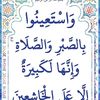 وَاسْتَعِينُوا
بِالصَّبْرِ وَالصَّلَاةِ ۚ
وَإِنَّهَا لَكَبِيرَةٌ
إِلَّا عَلَى الْخَاشِعِينَ